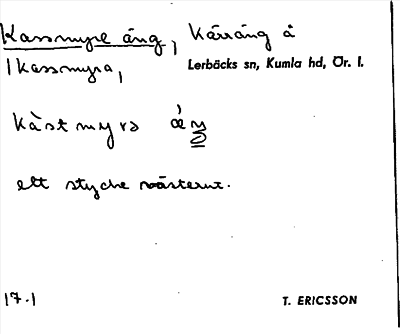 Kassmyre äng, Kärräng å
Kassmyra, Lerbäcks sn, Kumla hd, Ör. l.
kàstmyra
ett stycke västerut.
17.1 T. ERICSSON